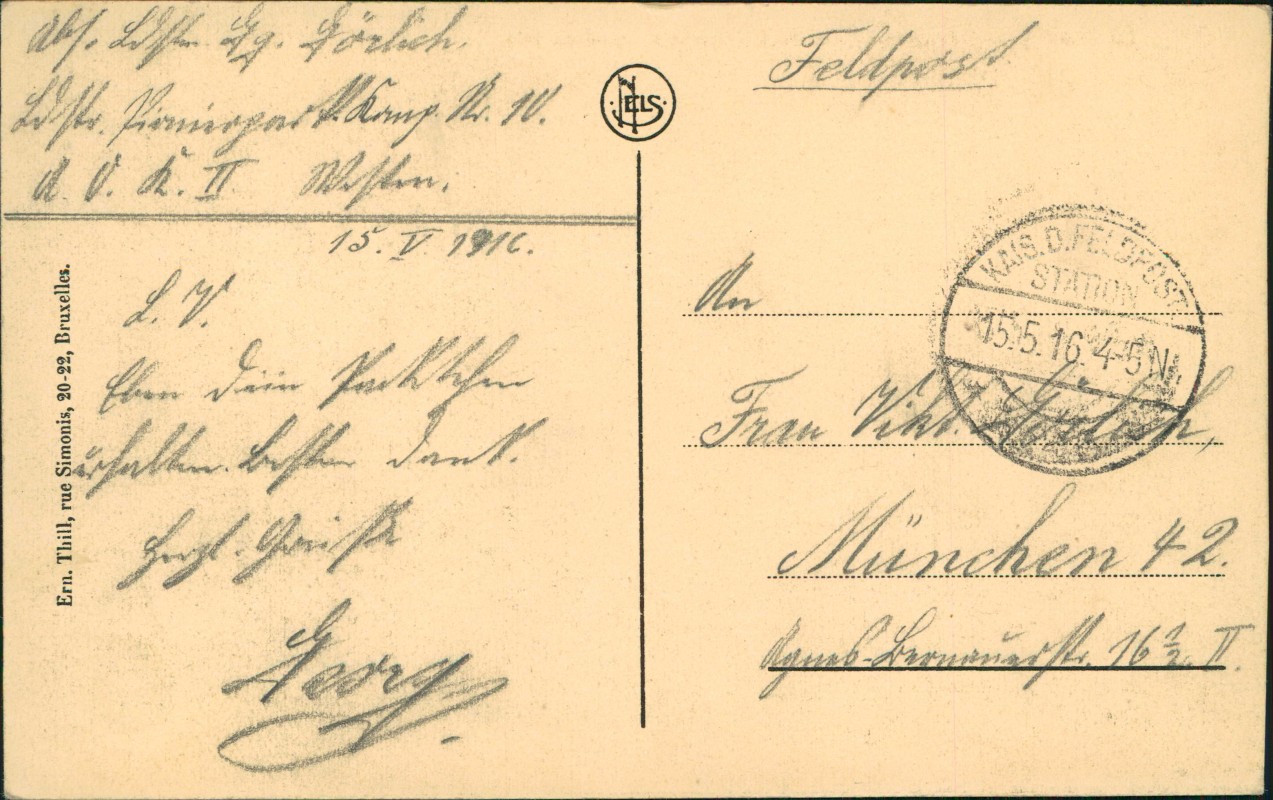 Abs. Ldstm. Gg. Görlich.
Ldstr. Pionierpark Komp. Nr. 10.
A. O. K. II Westen.
15. V. 1916.
L. V.
Eben dein Packtchen
erhalten. Besten Dank.
Herzl. Grüße
Georg
Ern. Thill, rue Simonis, 20-22, Bruxelles.
NELS
Feldpost
KAIS. D. FELDPOST-
STATION
15.5.16. 4-5 N.
An
Frau Vikt. Görlich,
München 42.
Agnes-Bernauerstr. 16 1/2 II.